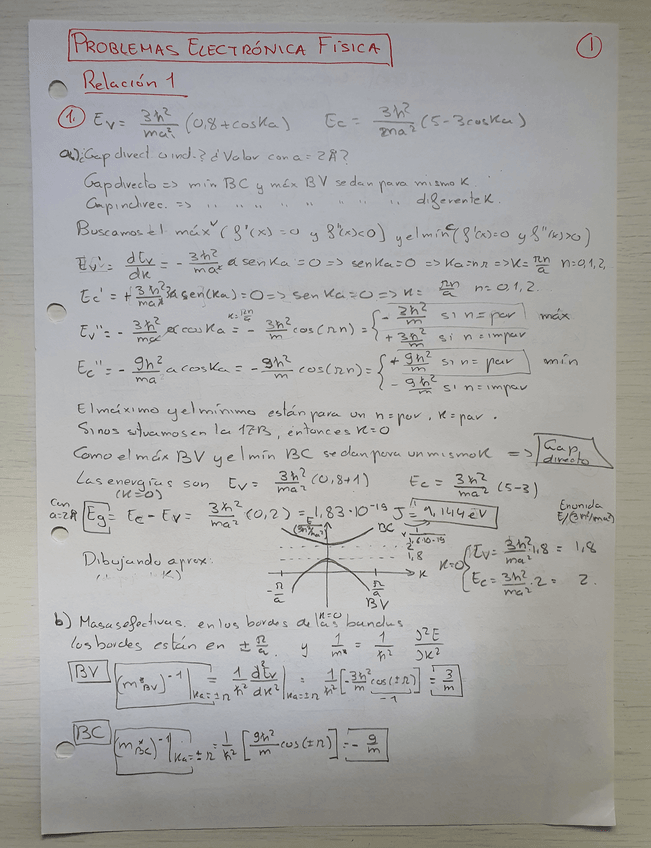 PROBLEMAS ELECTRÓNICA FÍSICA
1
Relación 1
1. Ev = 3ħ²/ma² (0,8 + cos Ka)   Ec = 3ħ²/ma² (5 - 3 cos Ka)
a) ¿Gap direct o ind.? ¿Valor con a = 2Å?
Gap directo => min BC y máx BV se dan para mismo K.
Gap indirec. => " " " " " " " diferente K.
Buscamos el máx (f'(x) = 0 y f''(x) < 0) y el mín (f'(x) = 0 y f''(x) > 0)
Ev' = dEv/dK = - 3ħ²/ma² a sen Ka = 0 => sen Ka = 0 => Ka = nπ => K = πn/a n = 0,1,2
Ec' = + 3ħ²/ma² 3a sen(Ka) = 0 => sen Ka = 0 => K = πn/a n = 0,1,2..
Ev'' = - 3ħ²/ma a cos Ka = - 3ħ²/m cos(πn) = { - 3ħ²/m si n = par   máx
K = πn/a
+ 3ħ²/m si n = impar
Ec'' = - 9ħ²/ma a cos Ka = - 9ħ²/m cos(πn) = { + 9ħ²/m si n = par   mín
- 9ħ²/m si n = impar
El máximo y el mínimo están para un n = par, K = par.
Si nos situamos en la 1ZB, entonces K = 0
Como el máx BV y el mín BC se dan para un mismo K => Gap directo
Las energías son Ev = 3ħ²/ma² (0,8+1)   Ec = 3ħ²/ma² (5-3)
(K=0)
Con a = 2Å Eg = Ec - Ev = 3ħ²/ma² (0,2) = 1,83·10⁻¹⁹ J = 1,144 eV
x 1/1,6·10⁻¹⁹
En unida E/(3ħ²/ma²)
Dibujando aprox:
E
(3ħ²/ma²)
BC
2
1,8
K
-π/a
π/a
K=0
BV
K=0 { Ev = 3ħ²/ma² 1,8 = 1,8
Ec = 3ħ²/ma² · 2 = 2.
b) Masas efectivas en los bordes de las bandas
Los bordes están en ± π/a y 1/m* = 1/ħ² ∂²E/∂K²
BV (m*BV)⁻¹|Ka=±π = 1/ħ² d²Ev/dK²|Ka=±π = 1/ħ² [-3ħ²/m cos(±π)] = 3/m
-1
BC (m*BC)⁻¹|Ka=±π = 1/ħ² [9ħ²/m cos(±π)] = - 9/m